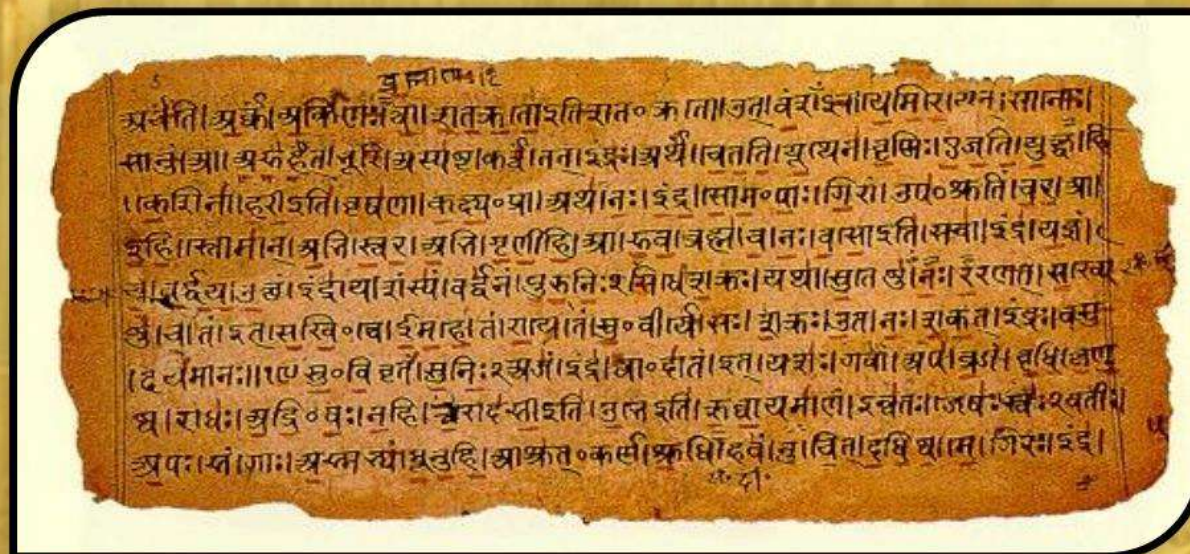 ब्रह्माणः
अर्चंति। अर्कं। अर्किणः। त्वा। शतक्रतो इति शत॰क्रतो। उत्। वंशंऽइव। येमिरे। यत्। सानोः।
सानुं। आ। अरुहत्। भूरि। अस्पष्ट। कर्त्वं। तत्। इंद्रः। अर्थं। चेतति। यूथेन। वृष्णिः। एजति। युक्ष्व। हि
। केशिना। हरी इति। वृषणा। कक्ष्य॰प्रा। अथ। नः। इंद्र। सोम॰पाः। गिरां। उप॰श्रुतिं। चर। आ।
इहि। स्तोमान्। अभि। स्वर। अभि। गृणीहि। आ। रुव। ब्रह्म। च। नः। वसो इति। सचा। इंद्र। यज्ञं।
च। वर्द्धय। उक्थं। इंद्राय। शंस्यं। वर्द्धनं। पुरुनिःऽसिधे। शक्रः। यथा। सुतेषु। नः। ररणत्। सख्ये
षु। च। तं। इत्। सखि॰त्वे। ईमहे। तं। राये। तं। सु॰वीर्ये। सः। शक्रः। उत। नः। शकत्। इंद्रः। वसु
। दयमानः॥१९ सु॰विवृतं। सुनिःऽअजं। इंद्र। त्वा॰दातं। इत्। यशः। गवां। अप। व्रजं। वृधि। कृणु
ष्व। राधः। अद्रि॰वः। नहि। त्वा। रोदसी इति। उभे इति। ऋघायमाणं। इन्वतः। जेषः। स्वःऽवतीः।
अपः। सं। गाः। अस्मभ्यं। धूनुहि। आश्रुत्॰कर्ण। श्रुधि। हवं। नु। चित्। दधिष्व। मे। गिरः। इंद्र।